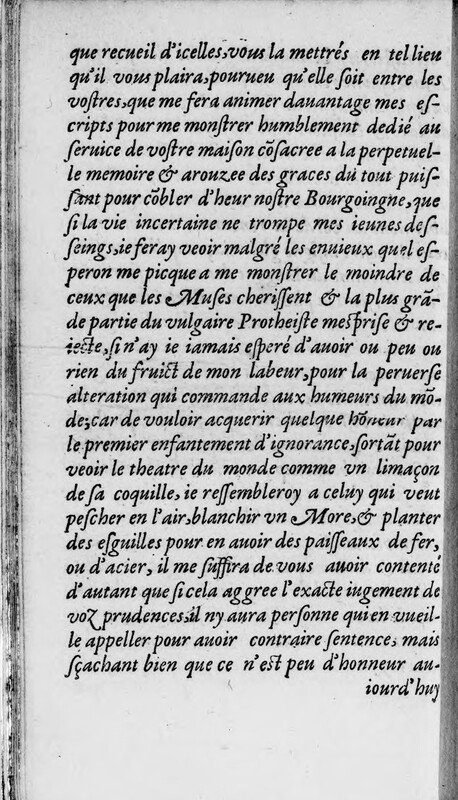 que recueil d'icelles, vous la mettrés en tel lieu
qu'il vous plaira, pourueu qu'elle ſoit entre les
voſtres, que me fera animer dauantage mes eſ-
cripts pour me monſtrer humblement dedié au
ſeruice de voſtre maiſon cõſacree a la perpetuel-
le memoire & arouzee des graces du tout puiſ-
ſant pour cõbler d'heur noſtre Bourgoingne, que
ſi la vie incertaine ne trompe mes ieunes deſ-
ſeings, ie feray veoir malgré les enuieux quel eſ-
peron me picque a me monſtrer le moindre de
ceux que les Muſes cheriſſent & la plus grã-
de partie du vulgaire Protheiſte meſpriſe & re-
iecte, ſi n'ay ie iamais eſperé d'auoir ou peu ou
rien du fruict de mon labeur, pour la peruerſe
alteration qui commande aux humeurs du mõ-
de; car de vouloir acquerir quelque honneur par
le premier enfantement d'ignorance, ſortãt pour
veoir le theatre du monde comme vn limaçon
de ſa coquille, ie reſſembleroy a celuy qui veut
peſcher en l'air, blanchir vn More, & planter
des eſguilles pour en auoir des paiſſeaux de fer,
ou d'acier, il me ſuffira de vous auoir contenté
d'autant que ſi cela aggree l'exacte iugement de
voz prudences, il ny aura perſonne qui en vueil-
le appeller pour auoir contraire ſentence, mais
ſçachant bien que ce n'eſt peu d'honneur au-
iourd'huy